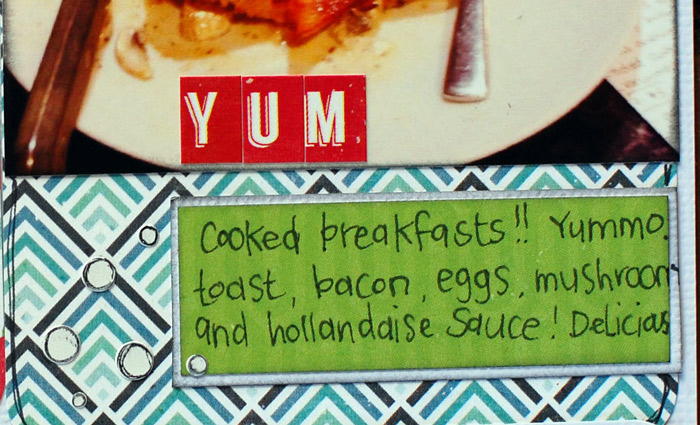 YUM
Cooked breakfasts!! Yummo.
toast, bacon, eggs, mushroom
and hollandaise Sauce! Delicias